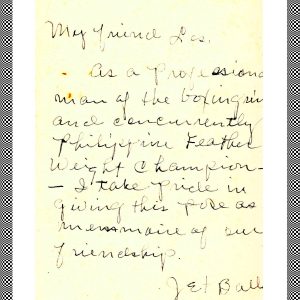 My friend Les.
As a professiona
man of the boxing rin
and concurrently
Philippine Feather
Weight Champion-
- I take pride in
giving this pose as
memmoire of our
friendship.
Jet Ball